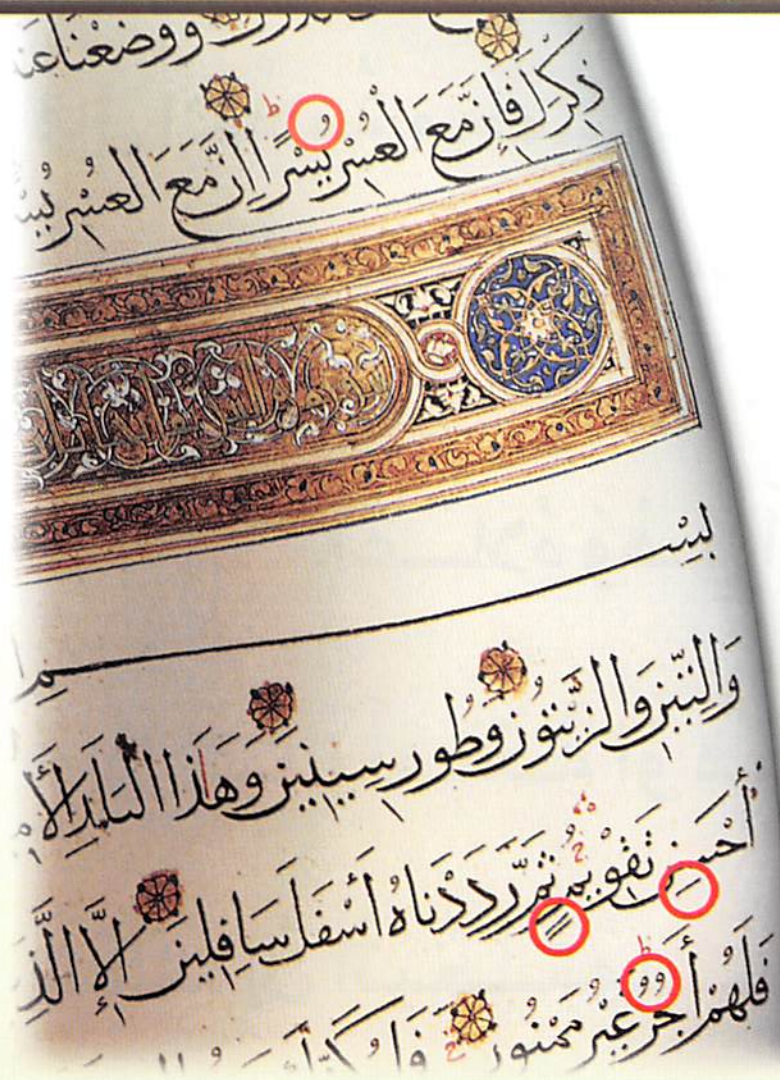 ووضعنا عنـ
ذِكْرَكَ فَإِنَّ مَعَ الْعُسْرِ يُسْرًا إِنَّ مَعَ الْعُسْرِ يُسْـ
سورة والتين
بِسْــــمِ ا
وَالتِّينِ وَالزَّيْتُونِ وَطُورِ سِينِينَ وَهَٰذَا الْبَلَدِ الْأَمِـ
أَحْسَنِ تَقْوِيمٍ ثُمَّ رَدَدْنَاهُ أَسْفَلَ سَافِلِينَ إِلَّا الَّذِ
فَلَهُمْ أَجْرٌ غَيْرُ مَمْنُونٍ فَمَا يُكَذِّبُـ